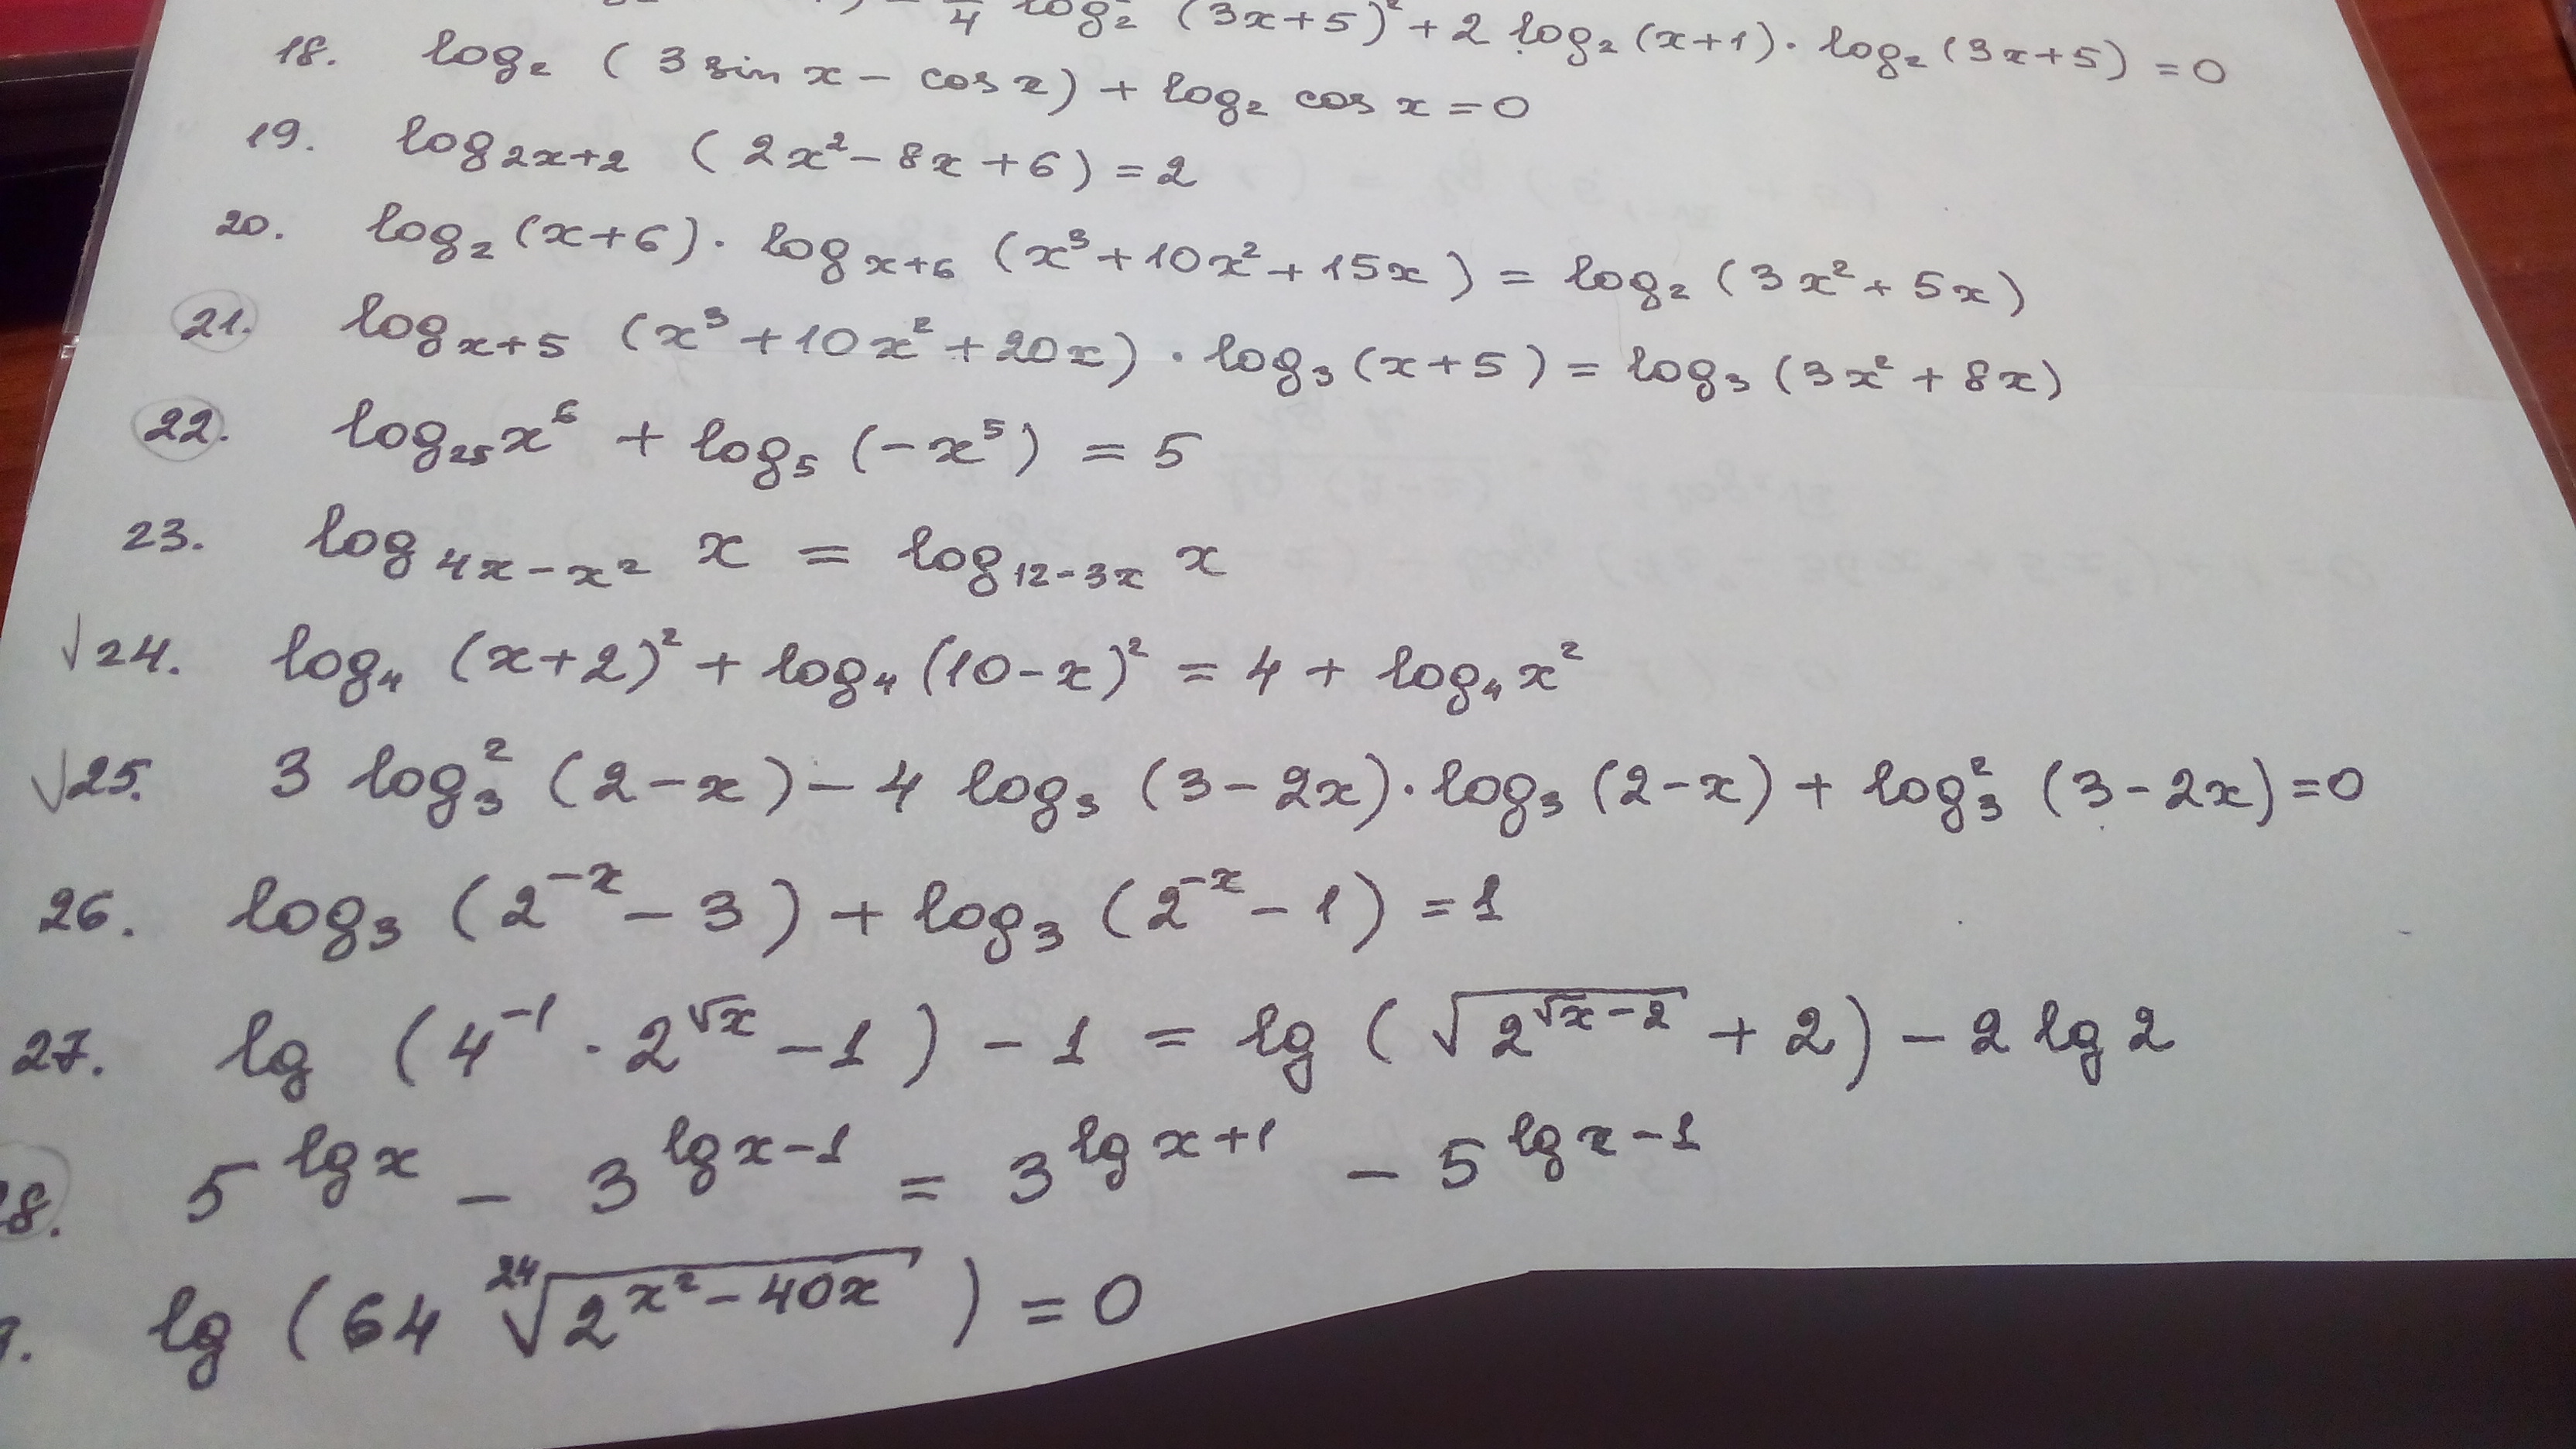 4 log₂² (3x+5)² + 2 log₂ (x+1) · log₂ (3x+5) = 0
18. log₂ (3 sin x − cos x) + log₂ cos x = 0
19. log₂ₓ₊₂ (2x² − 8x + 6) = 2
20. log₂ (x+6) · logₓ₊₆ (x³ + 10x² + 15x) = log₂ (3x² + 5x)
21. logₓ₊₅ (x³ + 10x² + 20x) · log₃ (x+5) = log₃ (3x² + 8x)
22. log₂₅ x⁶ + log₅ (−x⁵) = 5
23. log_{4x−x²} x = log_{12−3x} x
√24. log₄ (x+2)² + log₄ (10−x)² = 4 + log₄ x²
√25. 3 log₃² (2−x) − 4 log₃ (3−2x) · log₃ (2−x) + log₃² (3−2x) = 0
26. log₃ (2^{−x} − 3) + log₃ (2^{−x} − 1) = 1
27. lg (4^{−1} · 2^{√x} − 1) − 1 = lg (√(2^{√x−2}) + 2) − 2 lg 2
8. 5^{lg x} − 3^{lg x−1} = 3^{lg x+1} − 5^{lg x−1}
lg (64 ²⁴√(2^{x²−40x})) = 0